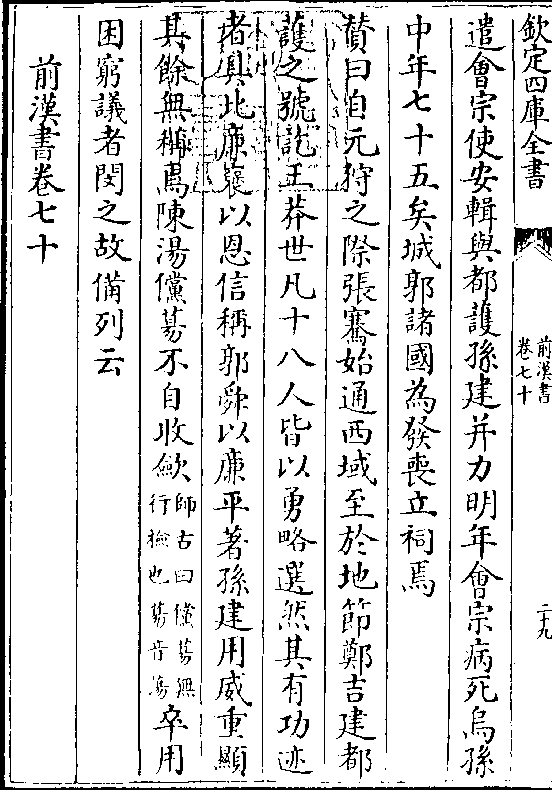 欽定四庫全書
前漢書
卷七十
二十九
遣會宗使安輯與都護孫建并力明年會宗病死烏孫
中年七十五矣城郭諸國為發喪立祠焉
贊曰自元狩之際張騫始通西域至於地節鄭吉建都
護之號訖王莽世凡十八人皆以勇略選然其有功迹
者具此廉褒以恩信稱郭舜以廉平著孫建用威重顯
其餘無稱焉陳湯儻蕩不自收斂師古曰儻蕩無行檢也蕩音蕩卒用
困窮議者閔之故備列云
前漢書卷七十